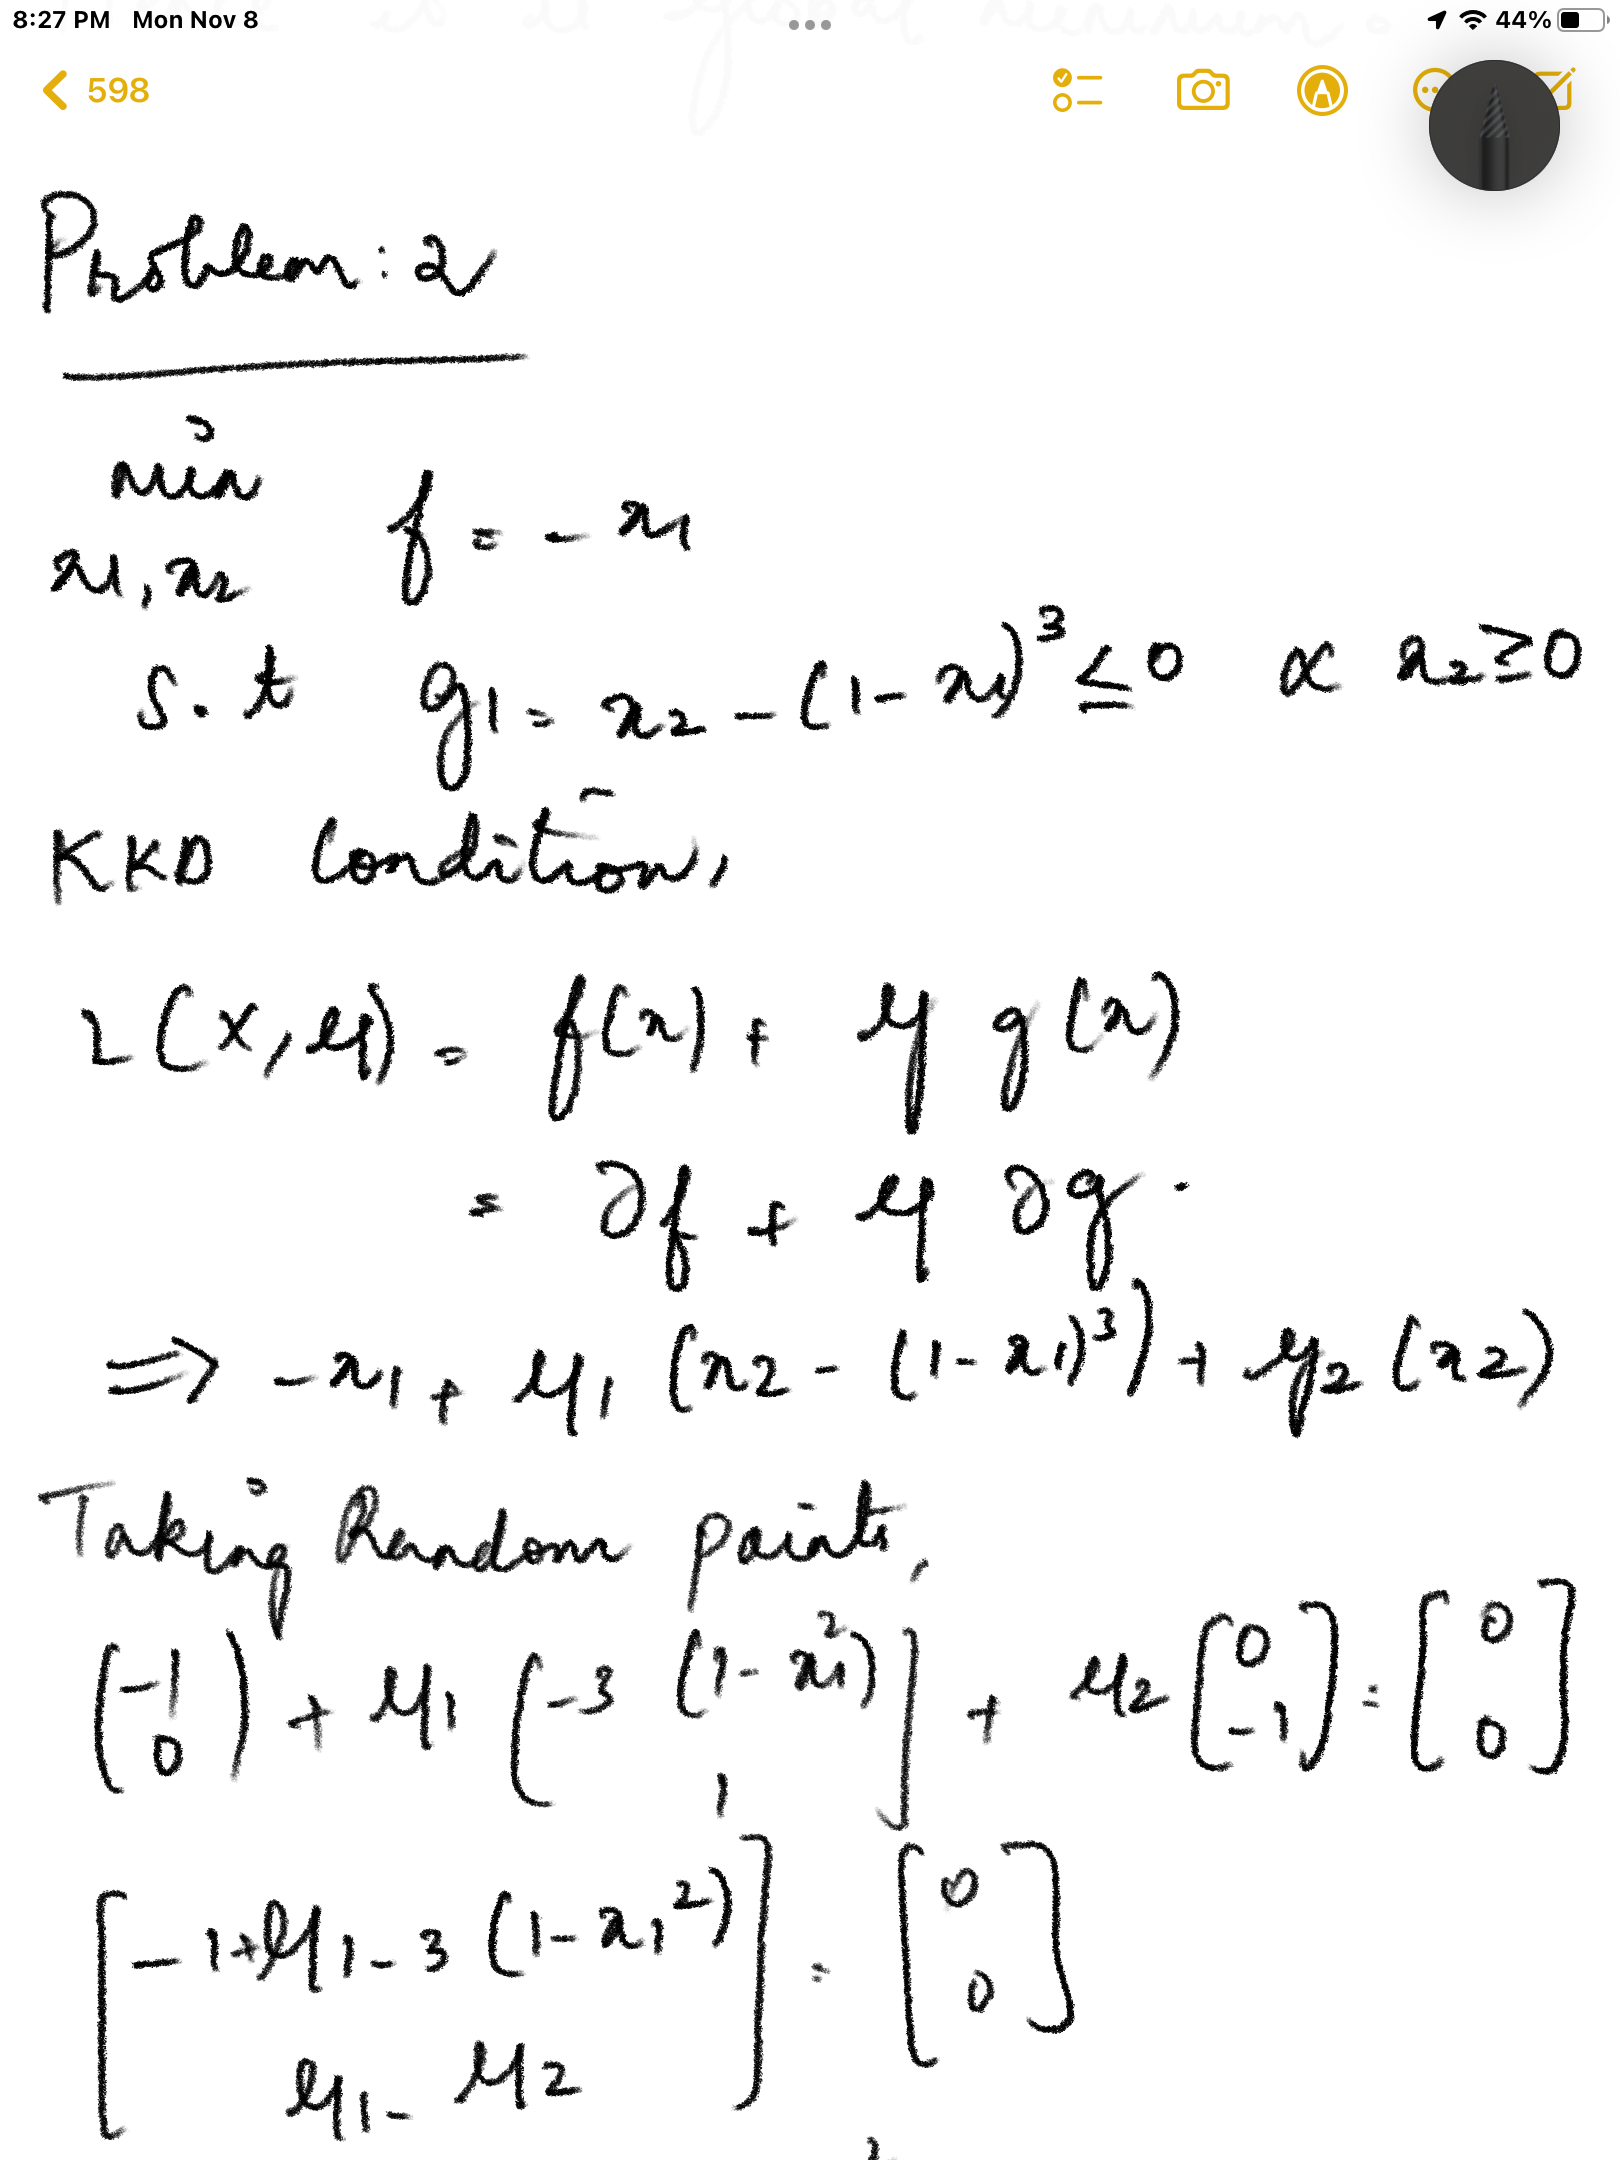 8:27 PM Mon Nov 8 44%
598
Problem: 2
min
x1, x2 f = - x1
S.t g1 = x2 - (1 - x1)^3 ≤ 0 & x2 ≥ 0
KKD Condition,
L(x, μ) = f(x) + μ g(x)
= ∂f + μ ∂g.
⇒ -x1 + μ1 (x2 - (1 - x1)^3) + μ2 (x2)
Taking Random points,
(-1 0) + μ1 [-3 (1 - x1^2) 1] + μ2 [0 -1] = [0 0]
[-1 + μ1 - 3 (1 - x1^2) μ1 - μ2] = [0 0]